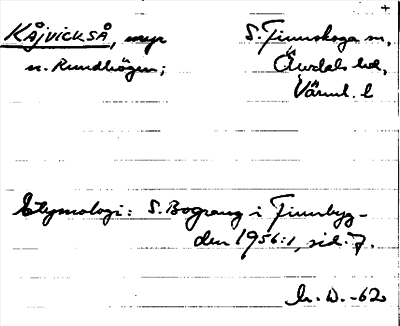 KÅJVICKSÅ, myr S. Finnskoga sn,
n. Rundhögen; Älvdals hd,
Värml. l
Etymologi: S. Bograng i Finnbyg-
den 1956:1, sid. 7.
W. -62